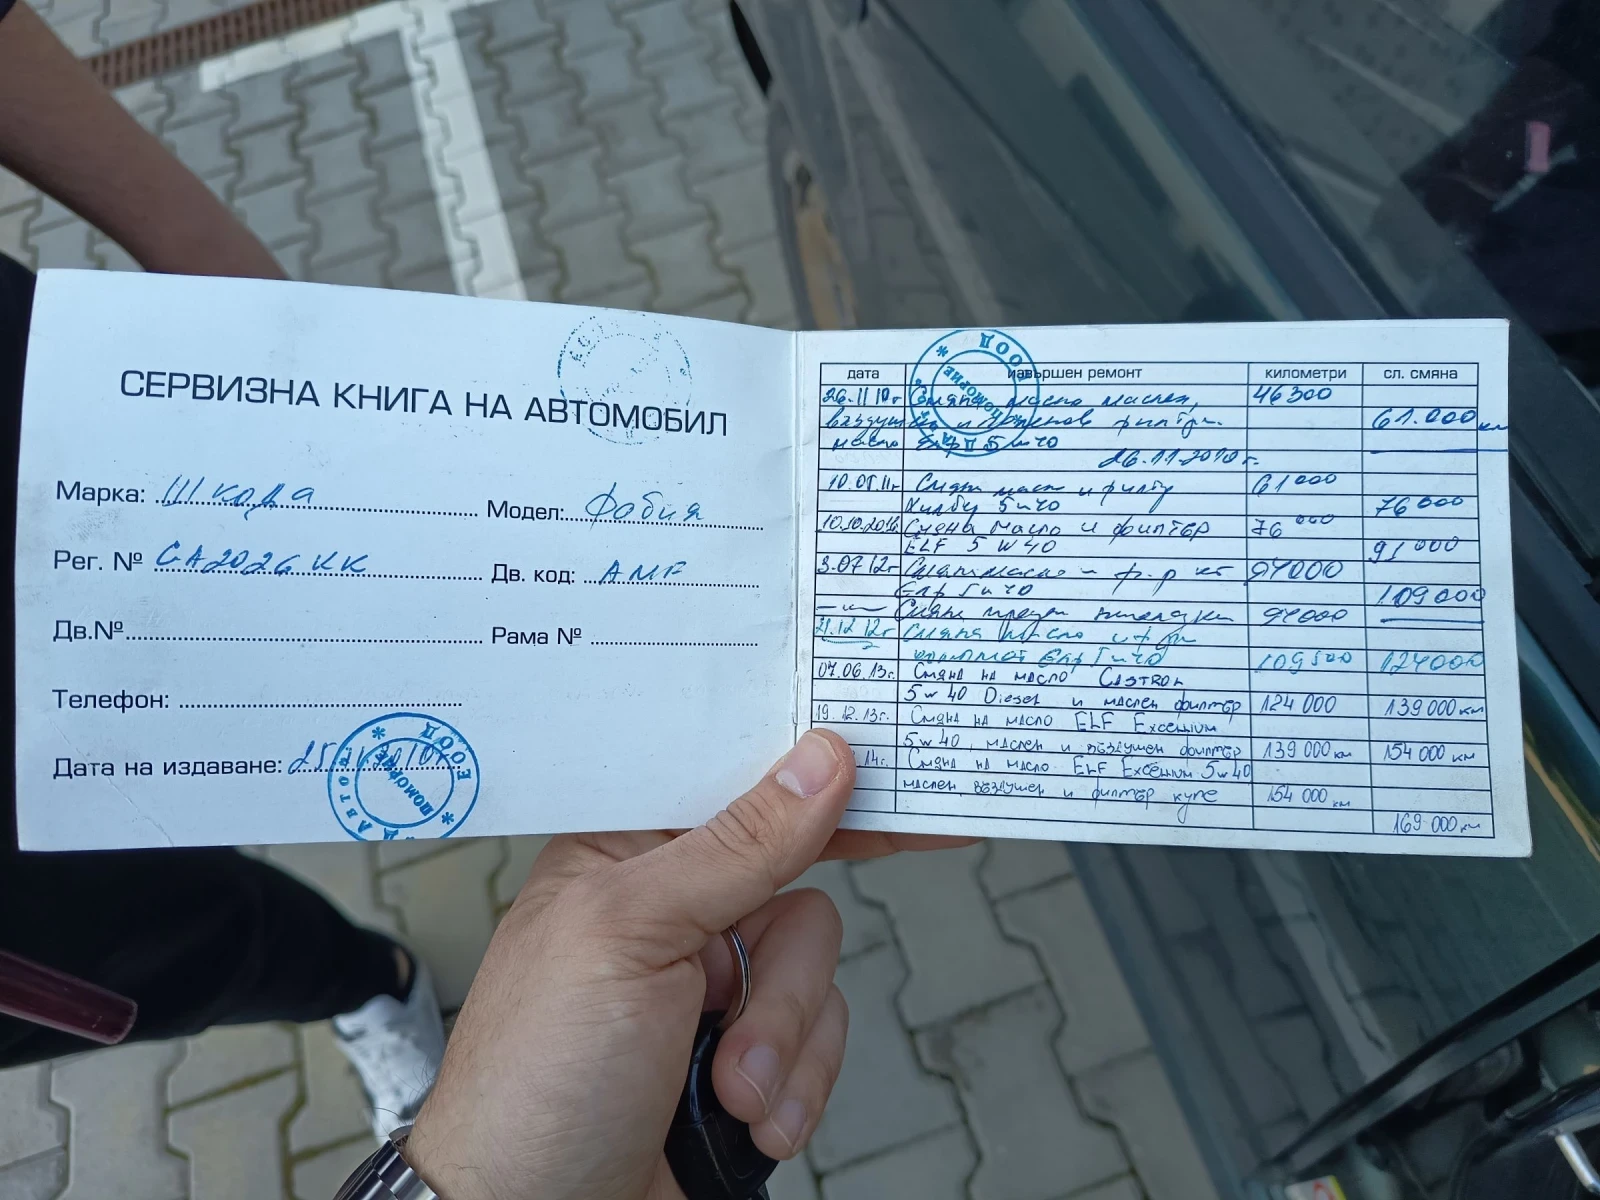 СЕРВИЗНА КНИГА НА АВТОМОБИЛ
Марка: Шкода Модел: Фобия
Рег. № СА2026КК Дв. код: AMF
Дв.№ Рама №
Телефон:
Дата на издаване:
ЕООД
ПОМОРИЕ
дата извършен ремонт километри сл. смяна
26.11.10г Смяна масло маслен, 46300
филтри 61.000 км
масло 5w40
26.11.2010г.
Смяна масл и филтр 61000
5w40 76000
Смяна масло и филтър 76000
ELF 5W40 91000
3.07 12г Смяна масло и 94000
5w40 109000
Смяна предни накладки 94000
21.12 12г Смяна масло и
5w40 109500 124000
07.06.13г. Смяна на масло CASTROL
5w40 Diesel и маслен филтър 124 000 139 000 км
19.12.13г. Смяна на масло ELF Excellium
5w40, маслен и въздушен филтър 139 000 км 154 000 км
14г. Смяна на масло ELF Excellium 5w40
маслен, въздушен и филтър купе 154 000 км
169 000 км